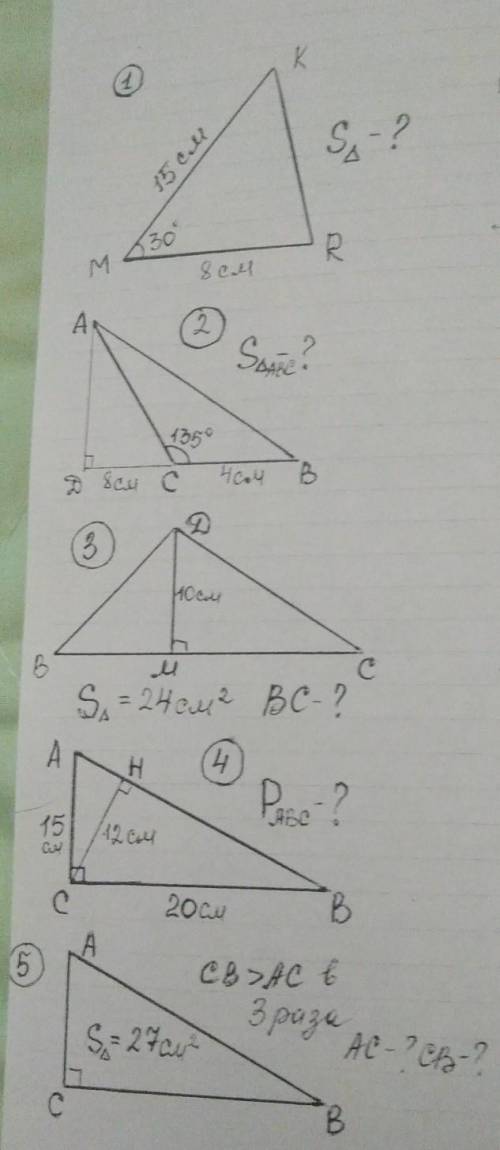 1
K
15 см
S△ - ?
30°
M
8 см
R
A
2
S△ABC - ?
135°
Д
8см
C
4см
B
3
Д
10см
B
M
C
S△ = 24 см² BC - ?
A
H
4
P ABC - ?
15 см
12 см
C
20 см
B
5
A
CB > AC в
3 раза
S△ = 27 см²
AC - ? CB - ?
C
B